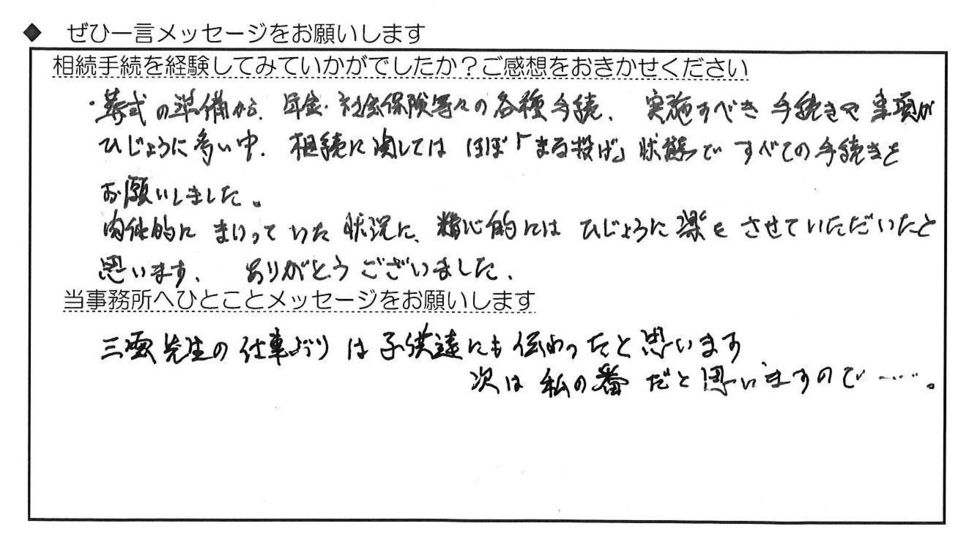 ◆ ぜひ一言メッセージをお願いします
相続手続を経験してみていかがでしたか？ご感想をおきかせください
・葬式の準備から、年金・社会保険等々の各種手続、実施すべき手続きや事項が
ひじょうに多い中、相続に関してはほぼ「まる投げ」状態ですべての手続きを
お願いしました。
肉体的にまいっていた状況に、精神的にはひじょうに楽をさせていただいたと
思います。ありがとうございました。
当事務所へひとことメッセージをお願いします
三雲先生の仕事ぶりは子供達にも伝わったと思います、
次は私の番だと思いますので……。